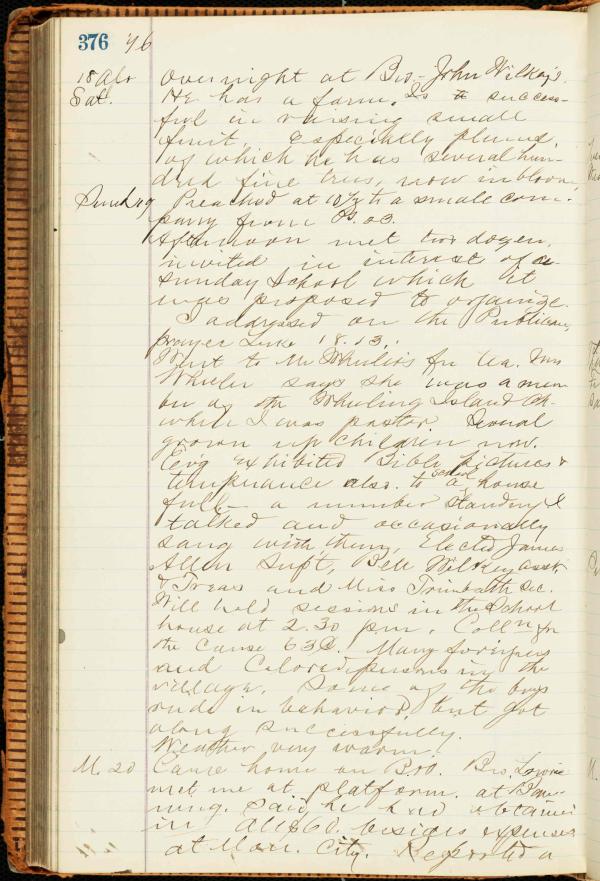 376 '96
18 Apr Over night at Bro. John Wilkey's.
Sat. He has a farm. Is success-
ful in raising small
fruit, especially plums,
of which he has several hun-
dred fine trees, now in bloom.
Sund 19 Preached at 10½ to a small com-
pany from
Afternoon met two dozen,
invited in interest of a
Sunday School which it
was proposed to organize.
I addressed on the Publican's
prayer Luke 18.13.
Went to Mr Wheeler's for tea. Mrs
Wheeler says she was a mem
ber of the Wheeling Island Ch.
when I was pastor. Several
grown up children now.
Ev'g exhibited Bible pictures &
temperance also. to a school house
full - a number standing. I
talked and occasionally
sang with them. Elected James
Allen Supt, Bell Wilkey asst.
& Treas and Miss Trimbath Sec.
Will hold sessions in the School
house at 2.30 p.m. Coll'n for
the Cause 63¢. Many foreigners
and Colored persons in the
village. Some of the boys
rude in behavior, but got
along successfully.
Weather very warm.
M. 20 Came home on B&O. Bro.
met me at platform at
said he had obtained
in all $60. besides expenses
at Mon. City. Reported a